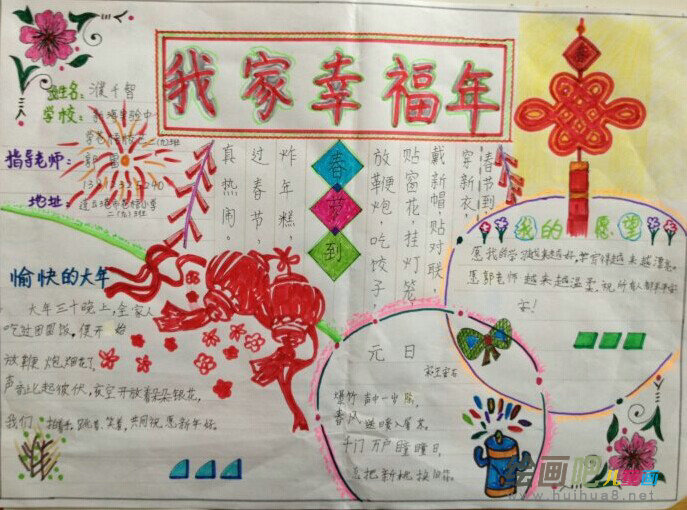 我家幸福年
姓名：濮千智
学校：
指导老师：郭
地址：
二(九)班
春节到
春节到，
穿新衣，
戴新帽，贴对联，
贴窗花，挂灯笼，
放鞭炮，吃饺子，
炸年糕，
过春节，
真热闹。
我的愿望
愿我的学习越来越好，
愿郭老师越来越温柔，祝所有人都平平安
安！
愉快的大年
大年三十晚上，全家人
吃过团圆饭，便开始
放鞭炮、烟花了，
声音此起彼伏，夜空开放着朵朵银花，
我们
共同祝愿新年好。
元日
宋王安石
爆竹声中一岁除，
春风送暖入屠苏。
千门万户瞳瞳日，
总把新桃换旧符。
绘画吧
儿童画
www.huihua8.net